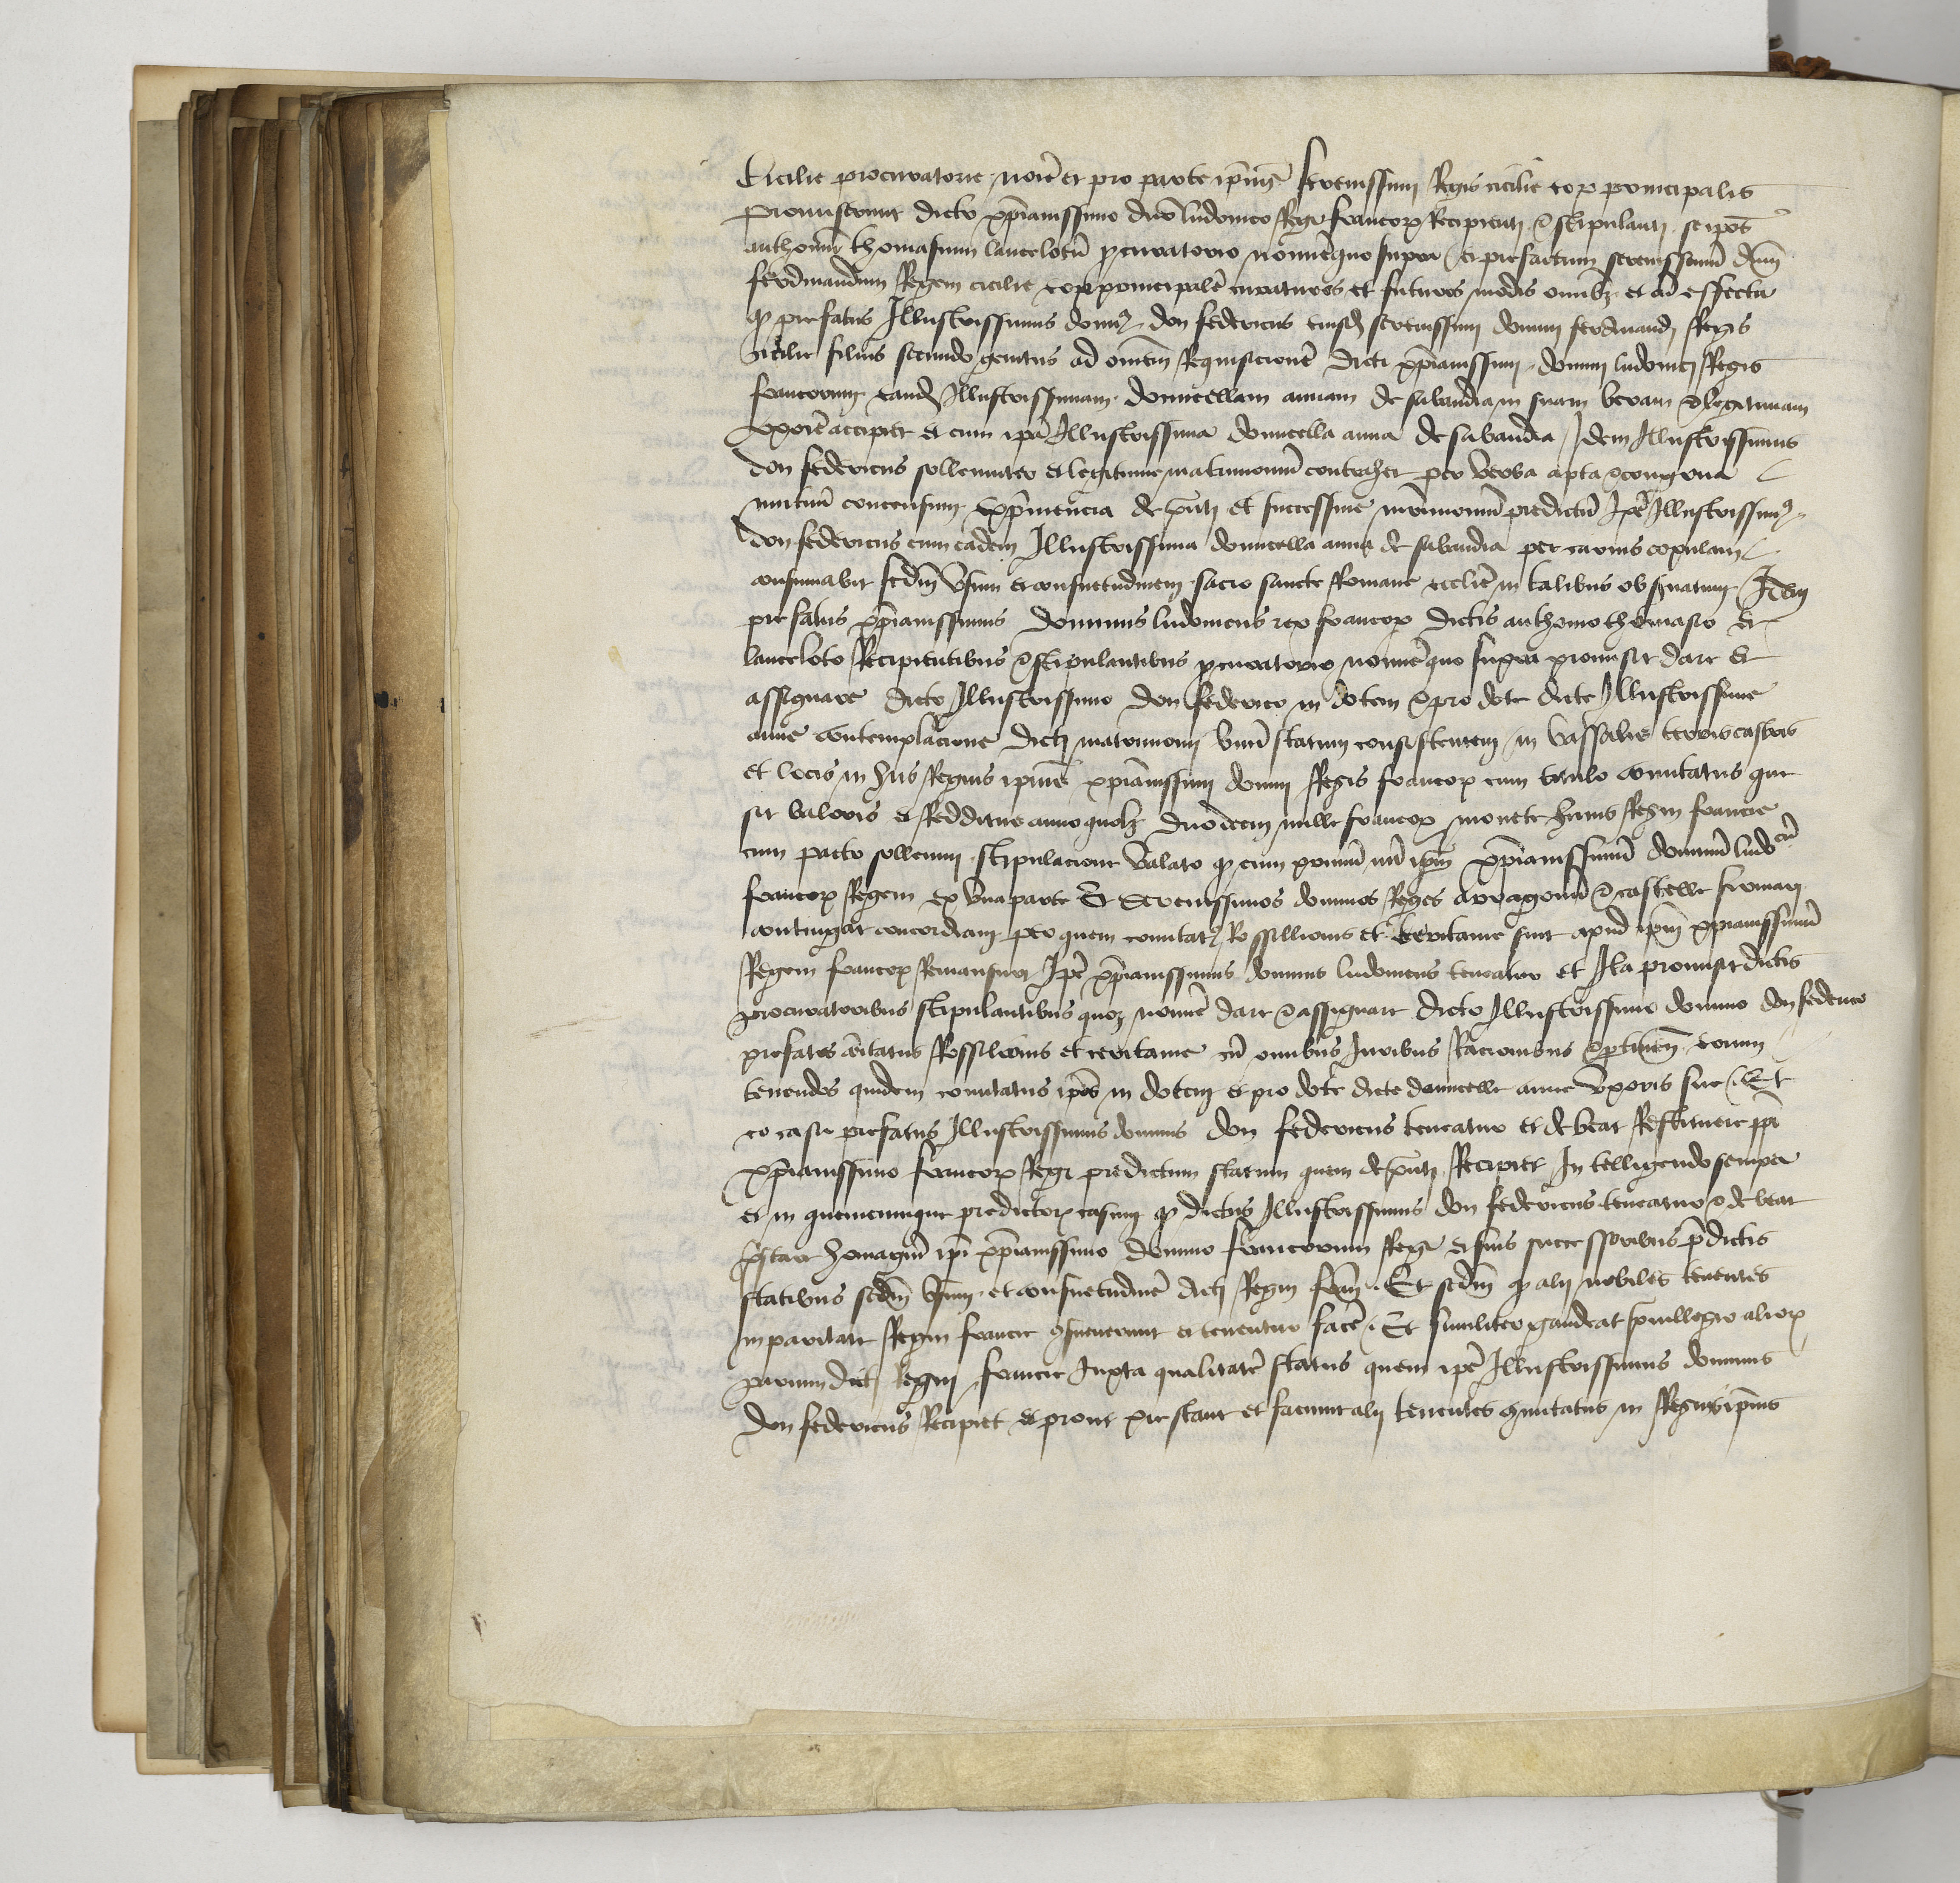 Cicilie procuratorie noīe et pro parte ip̄ius serenissimi Regis cicilie eoꝝ principalis
promiserunt dicto xp̄ianissimo dño ludovico Regi francoꝝ Recipienti & stipulanti se ipōs
anthoniū thomasium lancelotū ꝓcuratorio noīe quo supra et prefatum serenissimū dn̄m
ferdinandum Regem cicilie eoꝝ principalē curaturos et facturos modis omībꝫ et cū effectu
ꝙ prefatus Illustrissimus domꝰ don federicus eiusdē serenissimi domini ferdinandi Regis
cicilie filius secundo genitus ad omēm Requisicionē dicti xp̄ianissimi domini ludovici Regis
francorum eandē Illustrissimam domicellam annam de sabaudia in suam veram & legitimam
vxorē accipiet et cum ip̄a Illustrissima domicella anna de sabaudia Idem Illustrissimus
don federicus sollenniter et legitime matrimoniū contrahet per verba apta & congrua
mutuū concensum exp̄mencia de p̄nti et successive mr̄imoniū predictū Ip̄e Illustrissimꝰ
don federicus cum eadem Illustrissima domicella anna de sabaudia per carnis copulam
consumabit secdm̄ vsum et consuetudinem sacro sancte Romane ecclīe in talibus obs̄uatum Item
prefatus xp̄ianissimus dominus ludovicus rex francoꝝ dictis anthonio thomasio et
lanceloto Recipientibus & stipulantibus ꝓcuratorio noīe quo supra promisit dare et
assignare dicto Illustrissimo don federico in dotem & pro dote dicte Illustrissime
anne contemplacione dicti matrimonii vnū statum consistentem in vassallis terris castris
et locis in his Regnis ip̄ius xp̄ianissimi domini Regis francoꝝ cum titulo comitatus qui
sit valoris et Redditus anno quolꝫ duodecim mille francoꝝ monete huius Regni francie
cum pacto sollenni stipulacione valato ꝙ cum primū int̄ ip̄m xp̄ianissimū dominū ludouicū
francoꝝ Regem ex vna parte Et Serenissimos dominos Reges arragonū & castelle firmari
contingat concordiam per quem comitatꝰ Rossillionis et ceritanie sint apud ip̄m xp̄ianissimū
Regem francoꝝ Remansuri Ip̄e xp̄ianissimus dominus ludovicus teneatur et Ita promisit dictis
procuratoribus stipulantibus quoꝫ noīe dare & assignare dicto Illustrissimo domino don federico
prefatos cōitatus Rossilionis et ceritanie cū omnibus Iuribus Racionibus & ꝑtinen̄ eorum
tenendos quidem comitatus ip̄os in dotem et pro dote dicte domicelle anne vxoris sue Et
eo casu prefatus Illustrissimus dominus don federicus teneatur et debeat Restituere ip̄i
xp̄ianissimo francoꝝ Regi predictum statum quem de p̄nti Recipiet Intelligendo semper
et in quemcumque predictoꝝ casum ꝙ dictus Illustrissimus don federicus teneatur & debeat
p̄stare homagiū ip̄i xp̄ianissimo domino francorum Regi et suis successoribus p̄dictis
statibus secdm̄ vsum et consuetudinē dicti Regni fran̄ Et secdm̄ ꝙ alii nobiles tenentes
in paritate Regni francie ꝯsueverunt et tenentur facē Et similiter gaudeat privillegio alioꝝ
parium dicti Regni francie Iuxta qualitatē status quem ip̄e Illustrissimus dominus
don federicus Recipiet et prout prestant et faciunt alii tenentes ꝯmitatus in Regnis ip̄ius